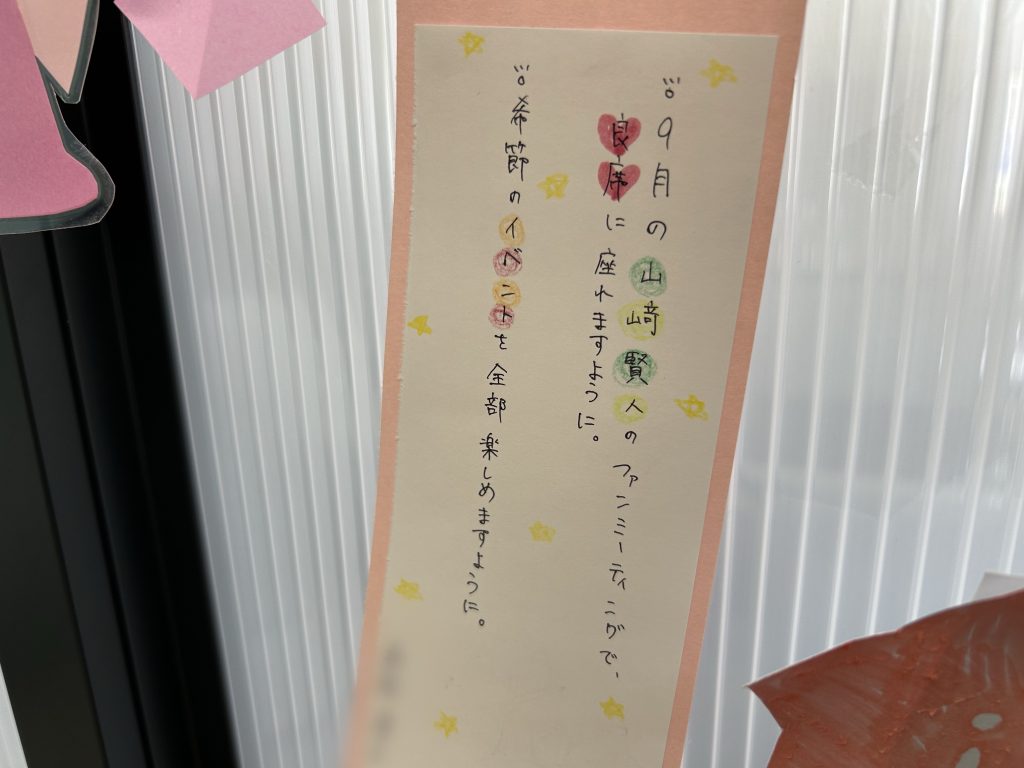 9月の山﨑賢人のファンミーティングで、
良席に座れますように。
希節のイベントを全部楽しめますように。